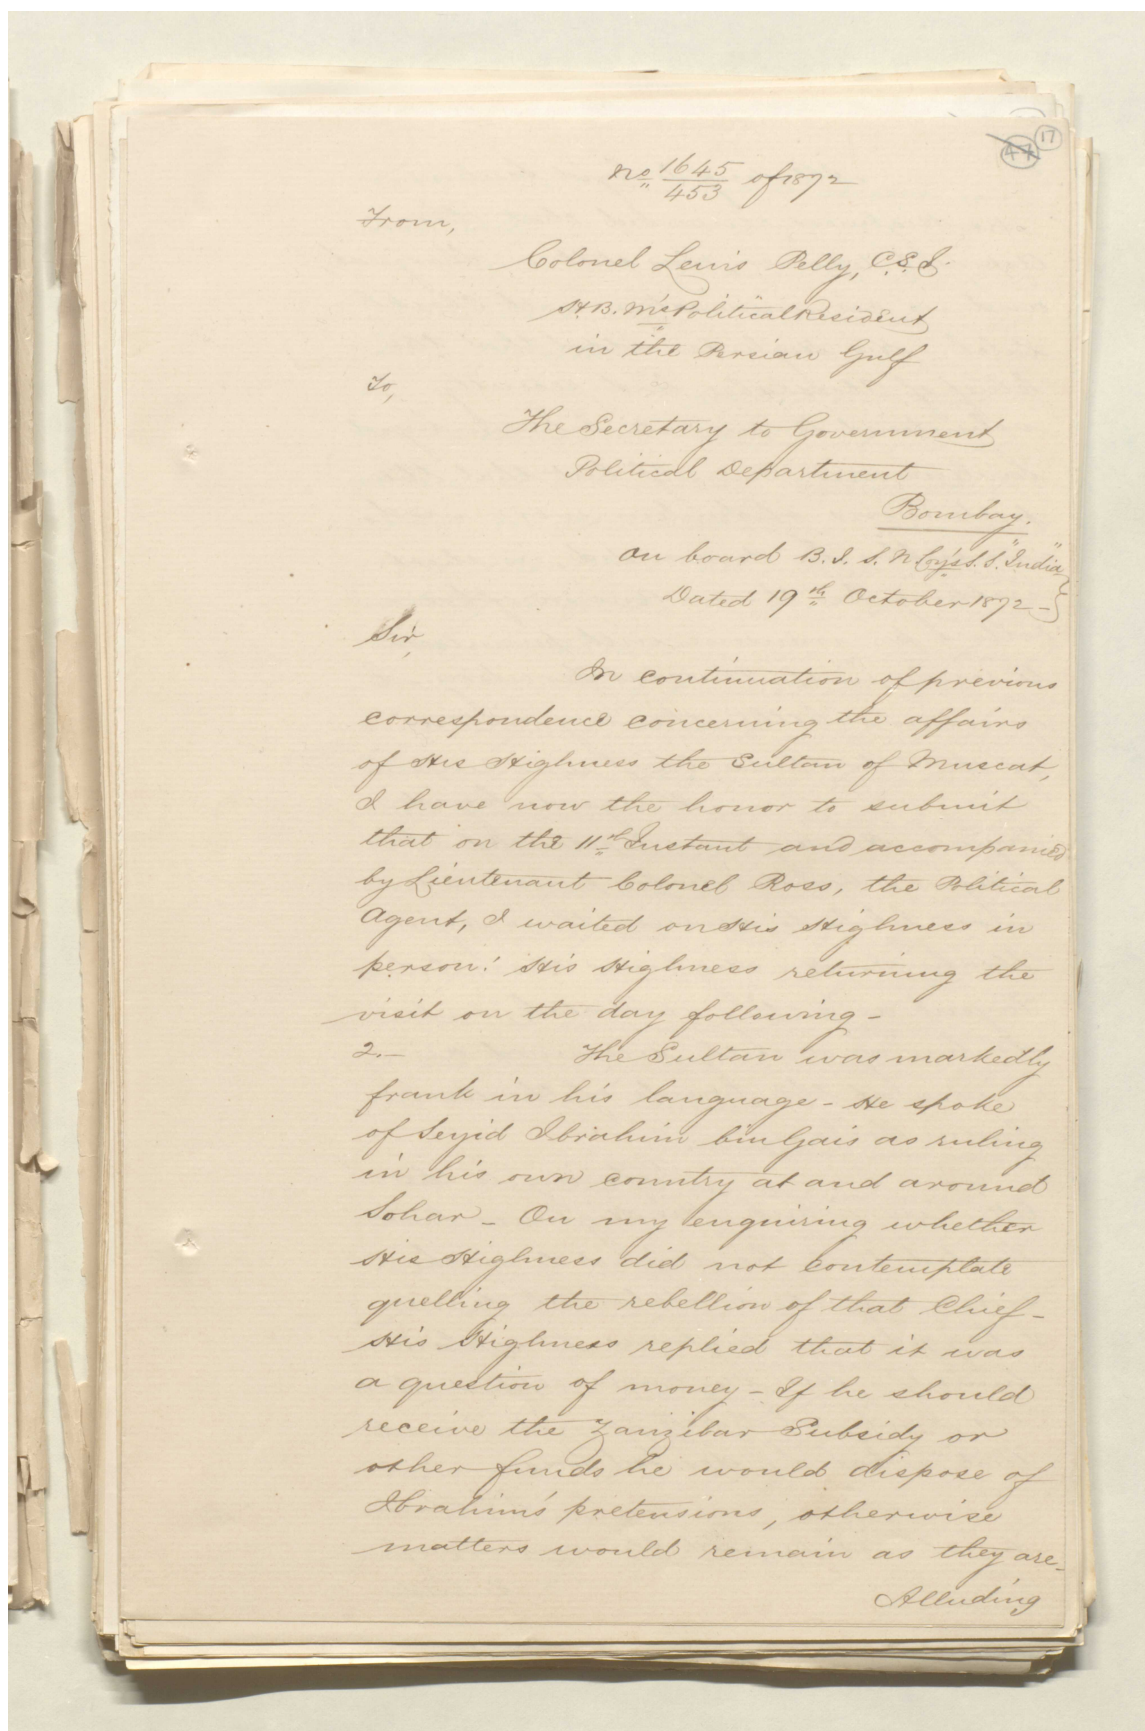 17
47
No 1645/453 of 1872
From,
Colonel Lewis Pelly, C.S.I.
H.B. M's Political Resident
in the Persian Gulf
To,
The Secretary to Government
Political Department
Bombay.
On board B.I.S.N Coy's S.S. "India"
Dated 19th October 1872 -
Sir,
In continuation of previous
correspondence concerning the affairs
of His Highness the Sultan of Muscat,
I have now the honor to submit
that on the 11th Instant and accompanied
by Lieutenant Colonel Ross, the Political
Agent, I waited on His Highness in
person: His Highness returning the
visit on the day following -
2.- The Sultan was markedly
frank in his language - He spoke
of Seyid Ibrahim bin Gais as ruling
in his own country at and around
Sohar - On my enquiring whether
His Highness did not contemplate
quelling the rebellion of that Chief -
His Highness replied that it was
a question of money - If he should
receive the Zanzibar Subsidy or
other funds he would dispose of
Ibrahim's pretensions, otherwise
matters would remain as they are -
Alluding